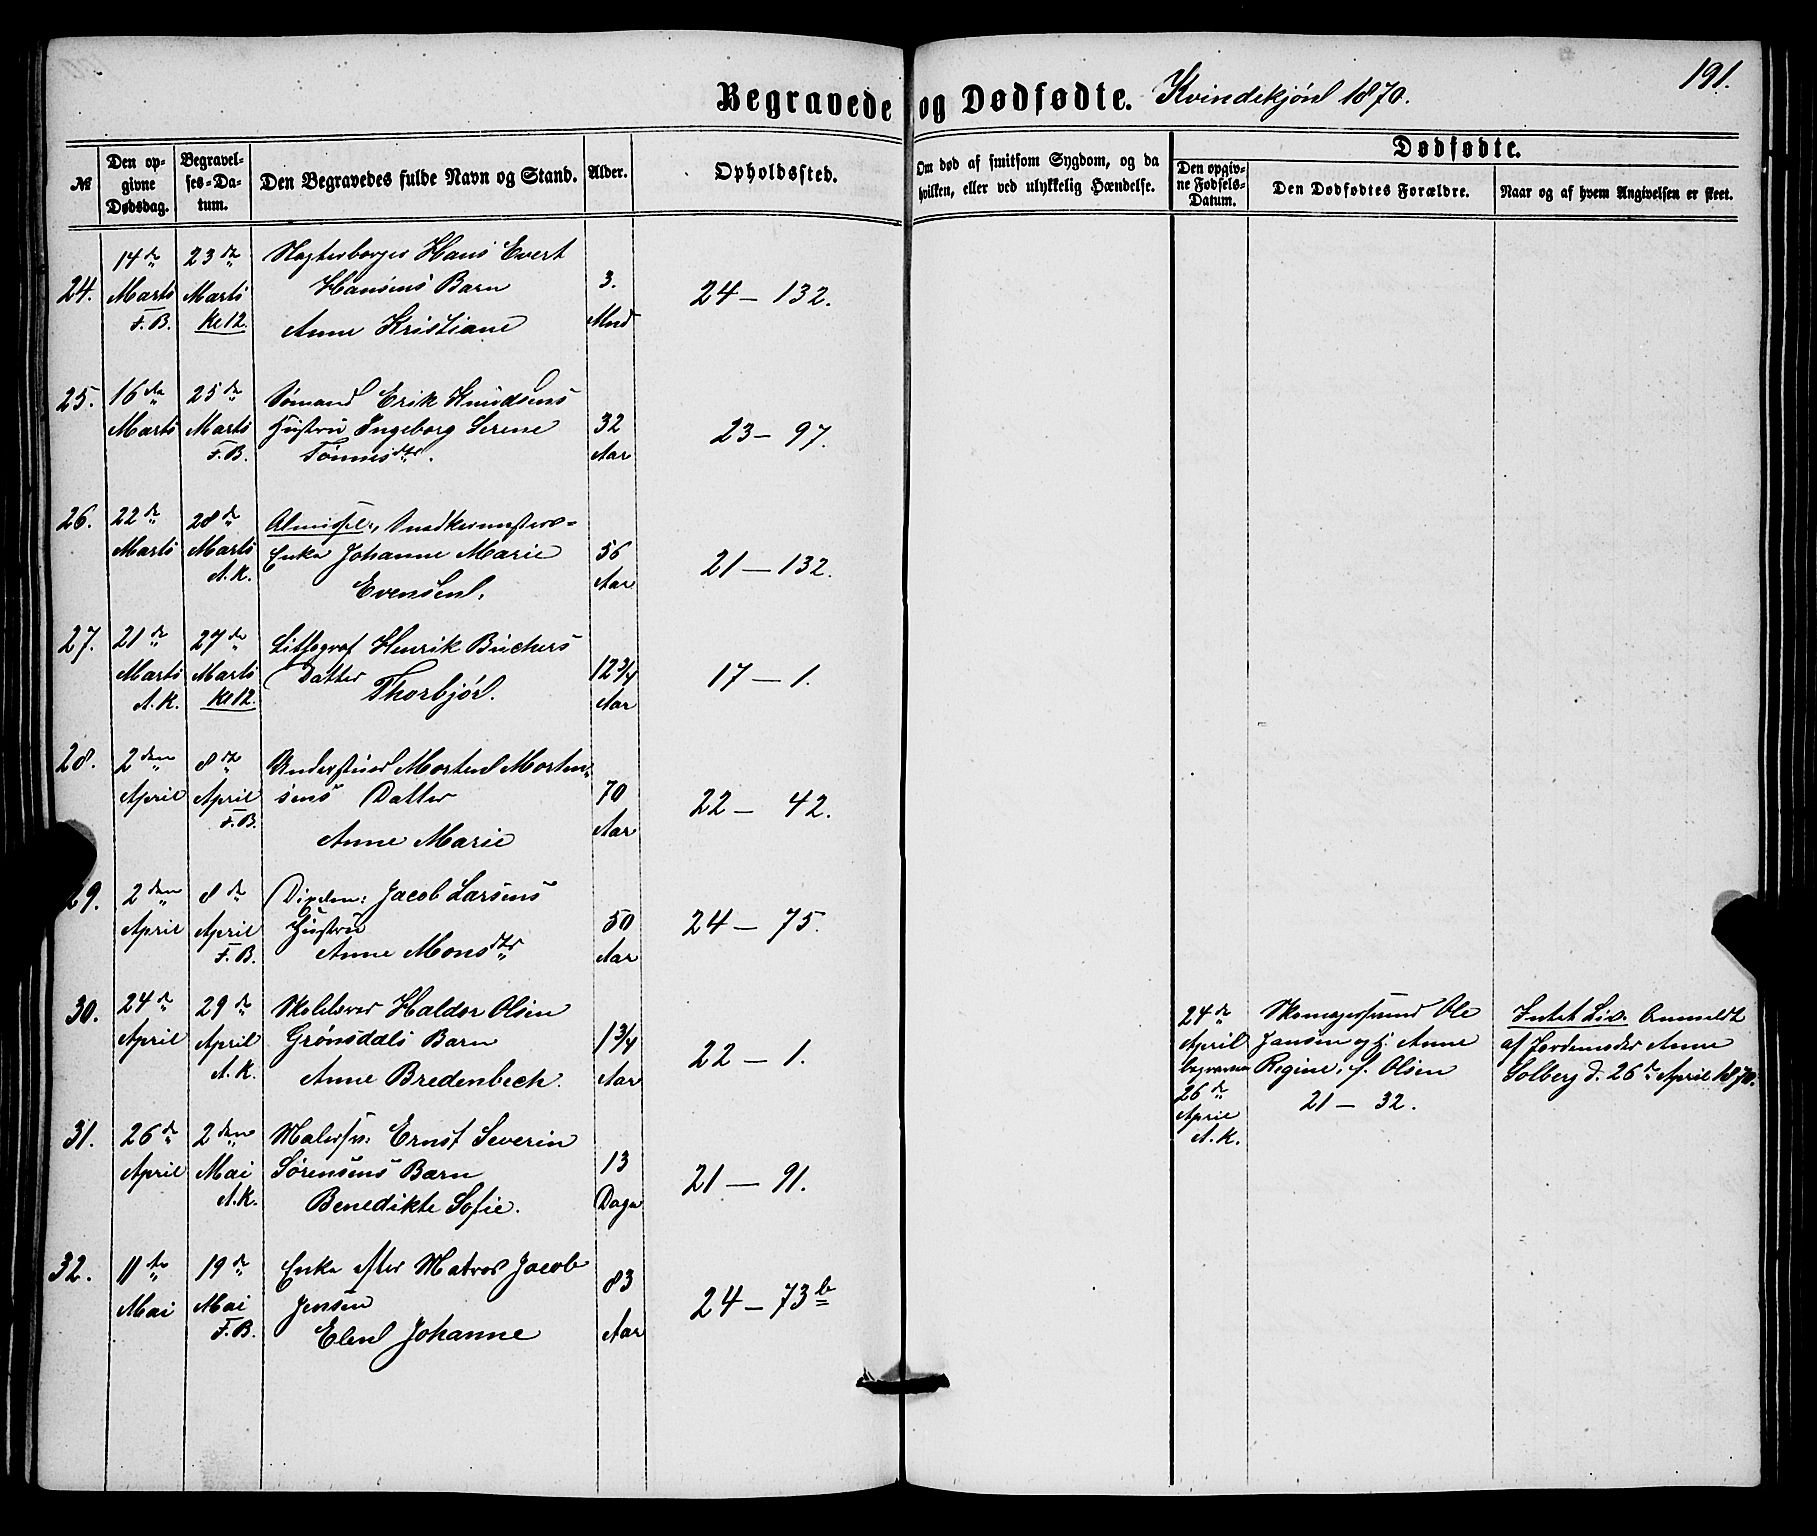 191.
Begravede og Dødfødte. Kvindekjøn 1870.
№
Den opgivne Dødsdag.
Begravelses-Datum.
Den Begravedes fulde Navn og Stand.
Alder.
Opholdssted.
Om død af smitsom Sygdom, og da hvilken, eller ved ulykkelig Hændelse.
Dødfødte.
Den opgivne Fødsels-Datum.
Den Dødfødtes Forældre.
Naar og af hvem Angivelsen er skeet.
24. 14de Marts F.B. 23de Marts Kl 12.
Hans Evert
Hansens Barn
Anne Kristiane
3. Mnd
24 – 132.
25. 16de Marts 25de Marts F.B.
Sømand Erik Knudsens
Hustru Ingeborg Serene
Tønnesdtr.
32 Aar
23 – 97.
26. 22de Marts 28de Marts A.K.
Snedkermesters-
Enke Johanne Marie
Evensen.
56 Aar
21 – 132.
27. 21de Marts A.K. 27de Marts Kl 12.
Lithograf Henrik Büchers
Datter
Thorbjør.
12 3/4 Aar
17 – 1.
28. 2den April 8de April F.B.
Morten Morten-
sens Datter
Anne Marie
70 Aar
22 – 42.
29. 2den April 8de April F.B.
Jacob Larsens
Hustru
Anne Monsdtr
50 Aar
24 – 75.
30. 24de April 29de April A.K.
Haldor Olsen
Grønsdals Barn
Anne Bredenbech.
1 3/4 Aar
22 – 1.
24de April begraven 26de April A.K.
Ole
Jansen og H. Anne
Regine, f. Olsen
21 – 32.
Intet Liv. Anmeldt
af Jordemoder Anne
Solberg d. 26de April 1870.
31. 26de April 2den Mai A.K.
Malersv: Ernst Severin
Sørensens Barn
Benedikte Sofie.
13 Dage
21 – 91.
32. 11te Mai 19de Mai F.B.
Enke efter Matros Jacob
Jensen
Elen Johanne
83 Aar
24 – 73b